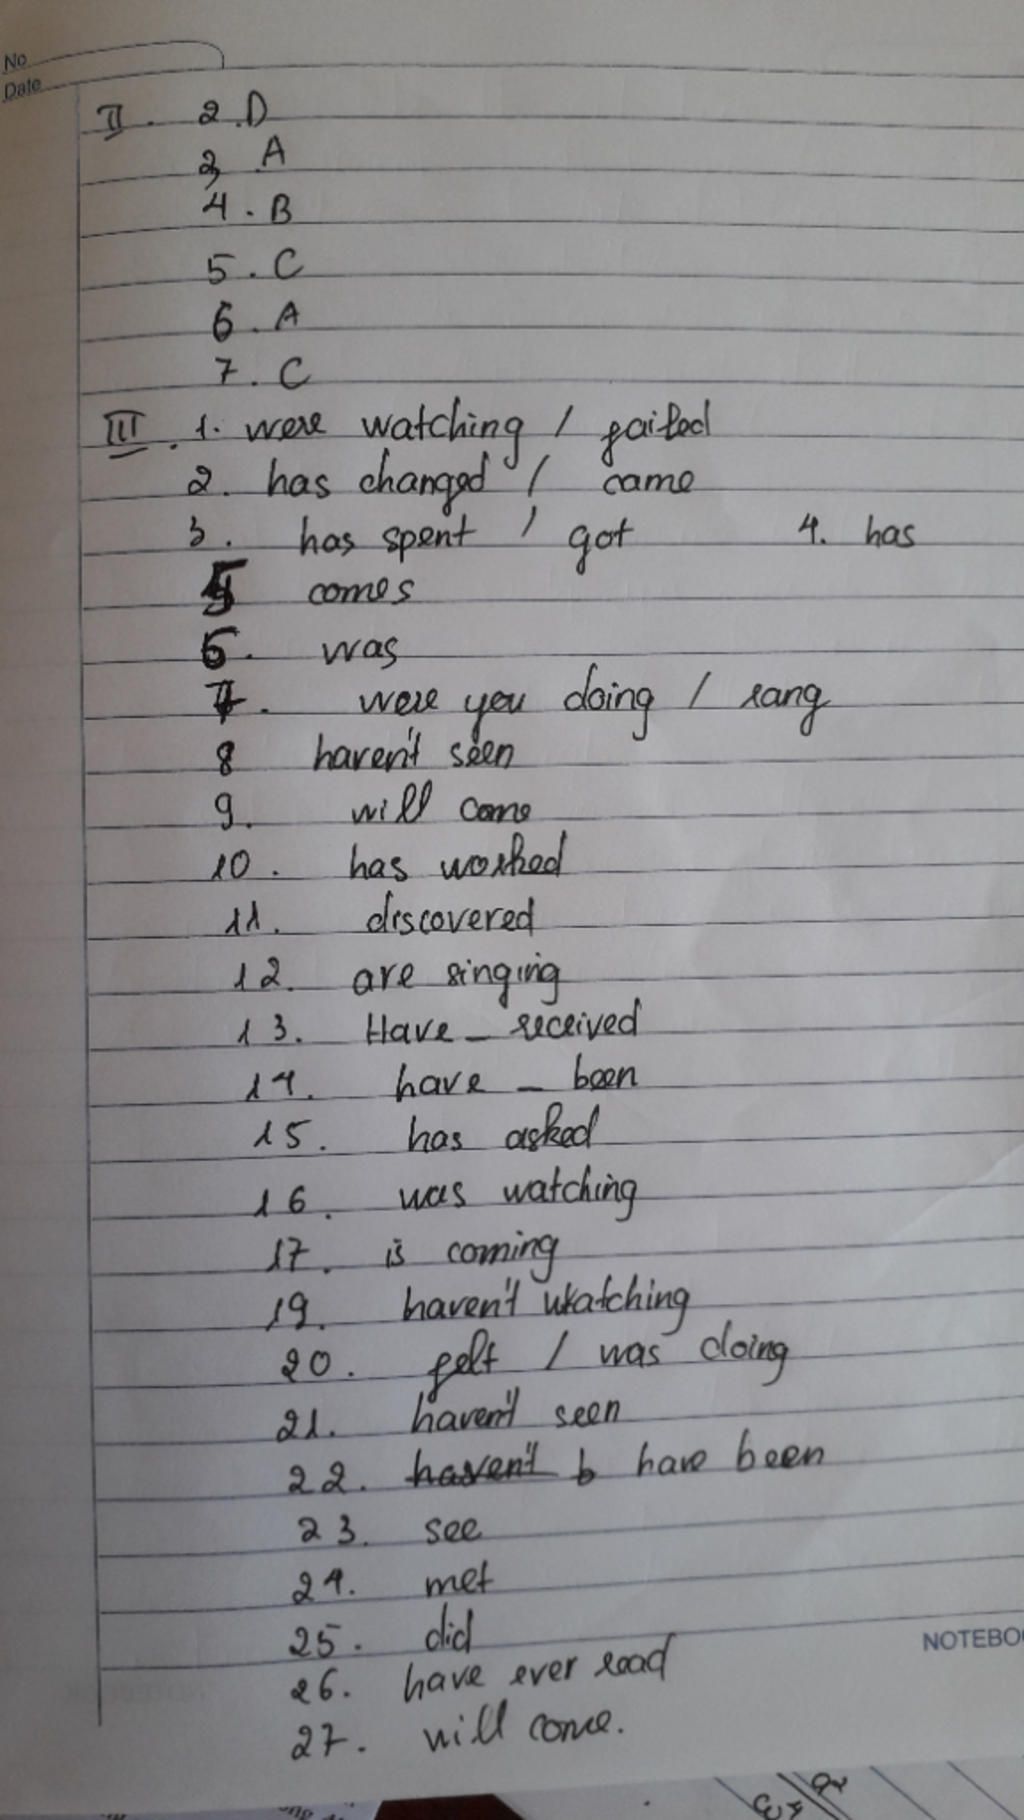 No
Date
II. 2.D
3 A
4. B
5. C
6. A
7. C
III. 1. were watching / failed
2. has changed / came
3. has spent / got 4. has
5 comes
6. was
7. were you doing / rang
8 haven't seen
9. will come
10. has worked
11. discovered
12. are singing
13. Have - received
14. have - been
15. has asked
16. was watching
17. is coming
19. haven't watching
20. felt / was doing
21. haven't seen
22. haven't b have been
23. see
24. met
25. did
NOTEBO
26. have ever read
27. will come.